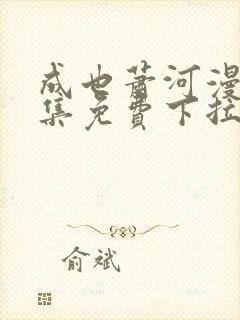 成也萧河漫
集免費下拉
俞斌